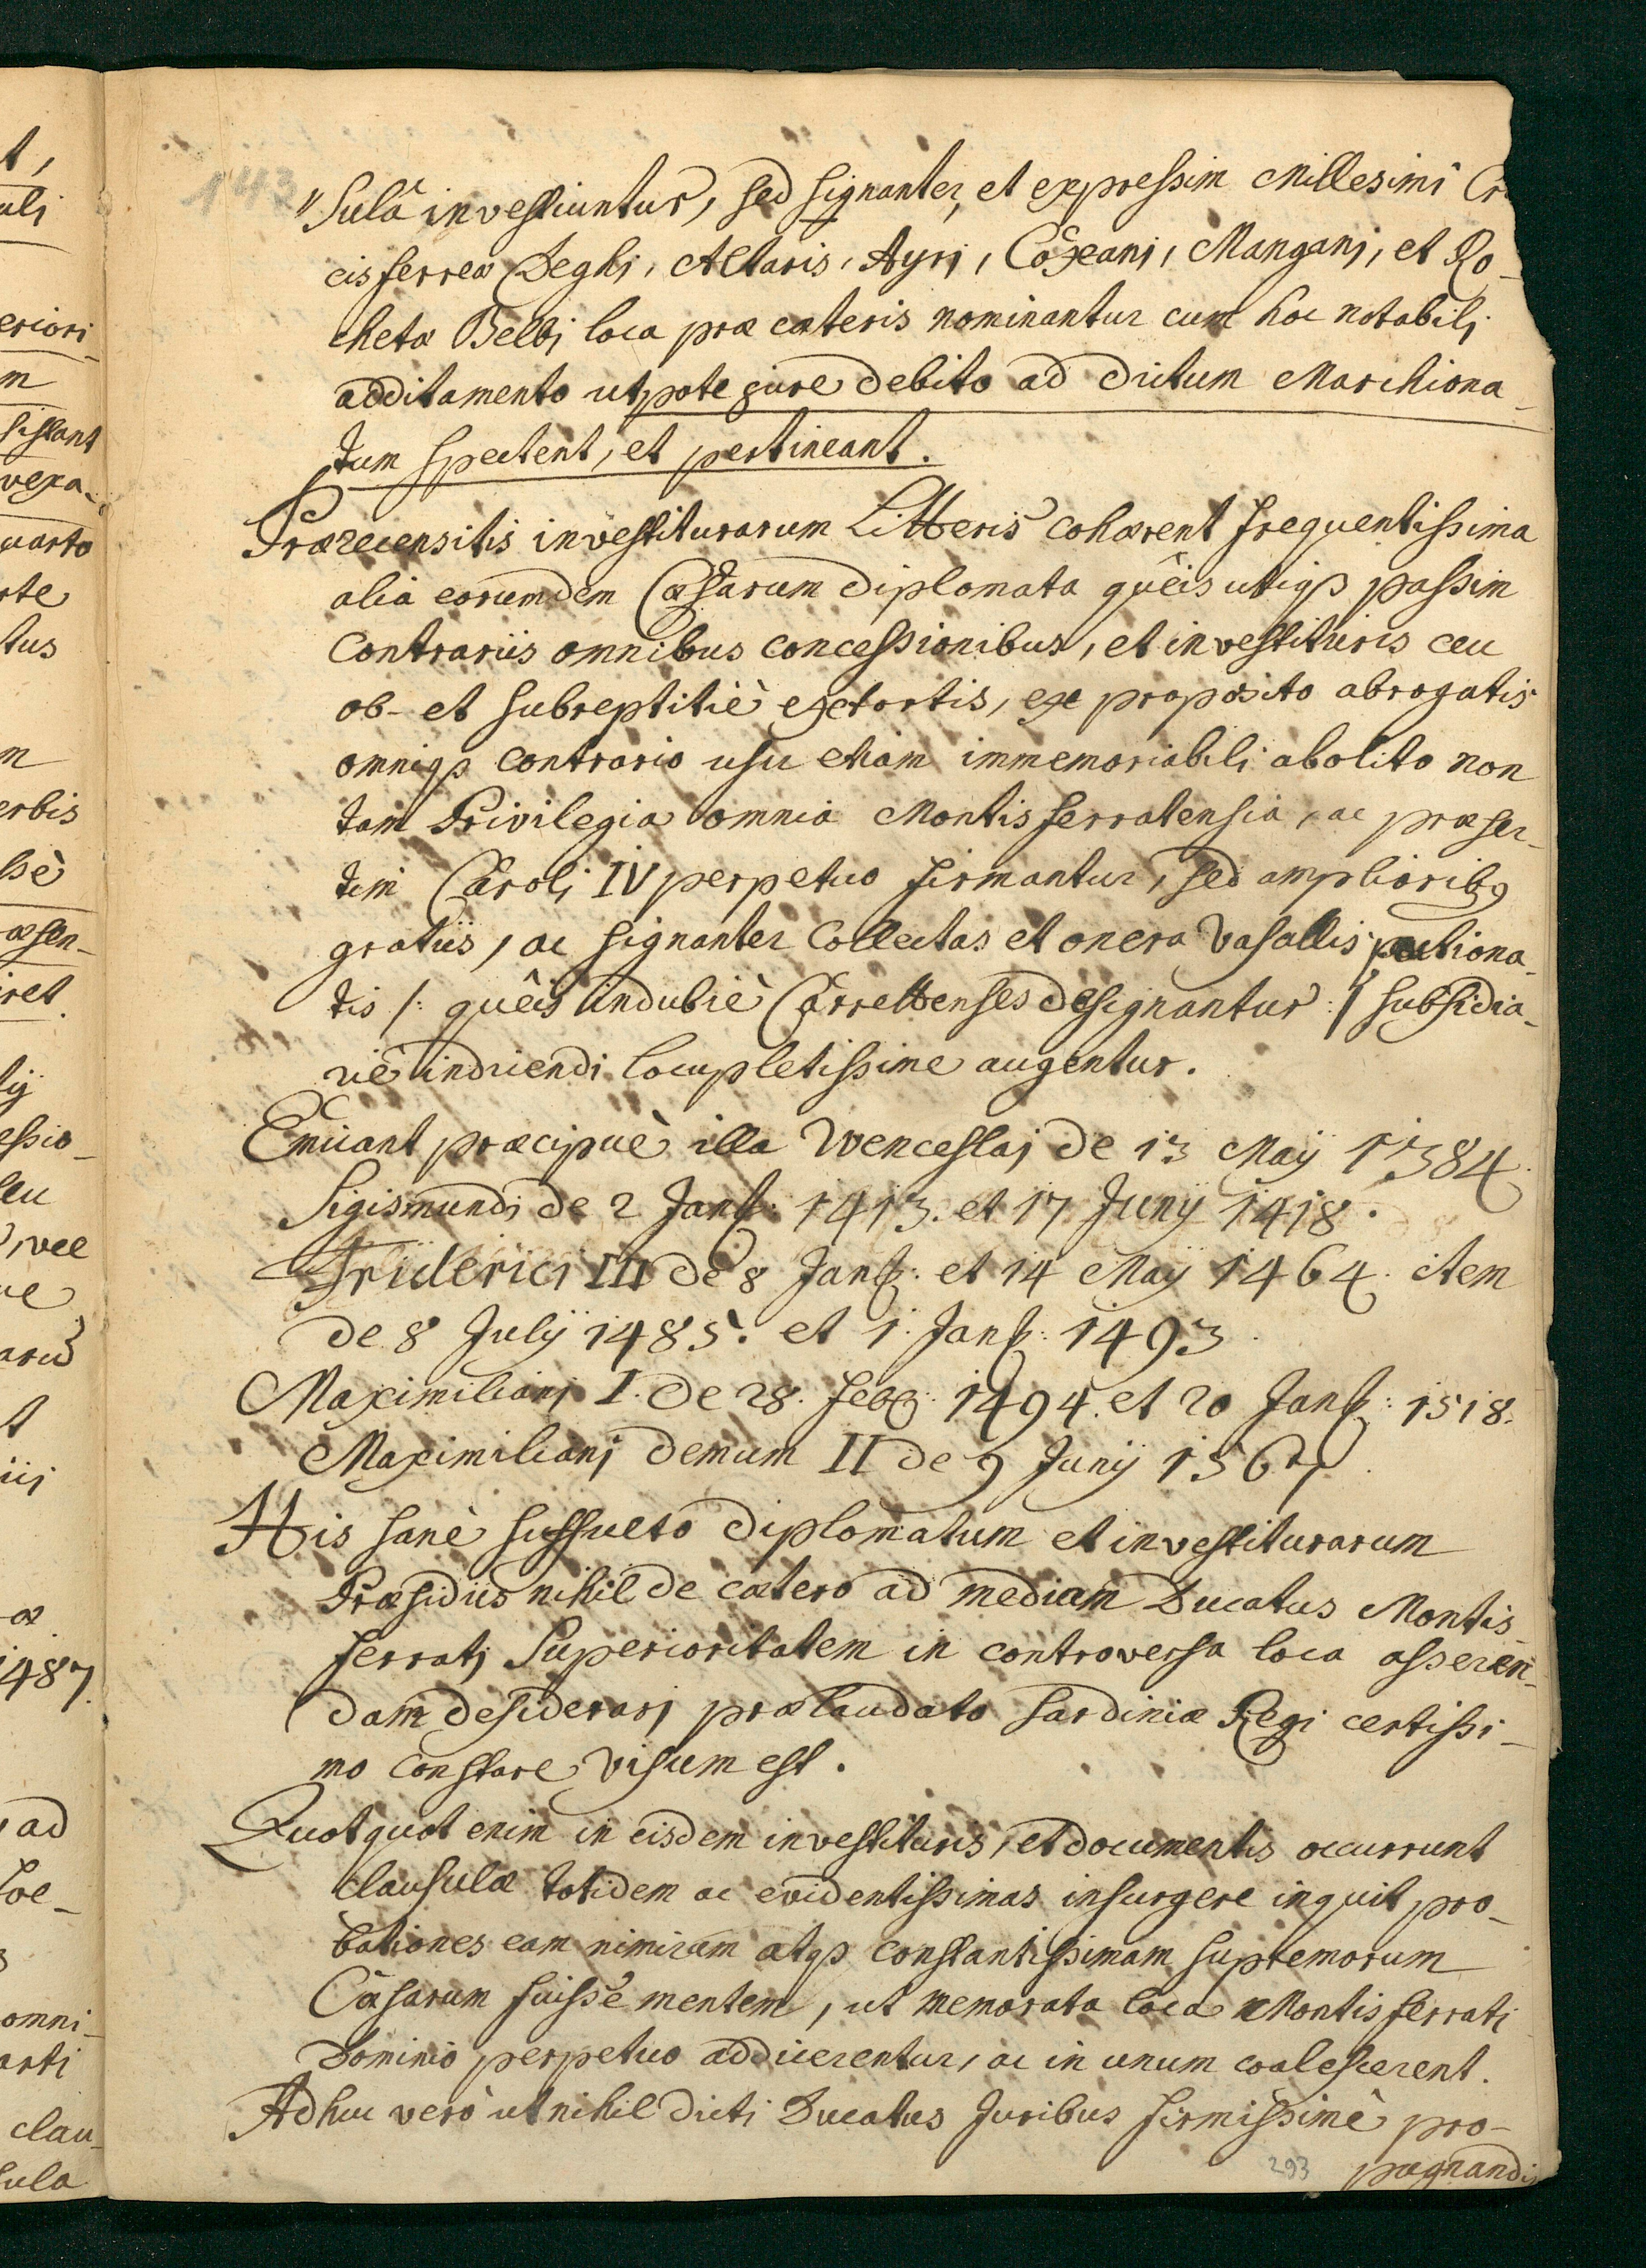 143
"sulâ investiuntur, sed signanter, et expressim Millesimi Cru
cis ferreæ Deghi, Altaris, Ayri, Coxeani, Mangani, et Ro-
chetæ Belbi loca præ cæteris nominantur cum hoc notabili
additamento utpote jure debito ad dictum Marchiona-
tum spectent, et pertineant.
Præreensitis investiturarum Litteris cohærent frequentissima
alia eorumdem Cæsarum diplomata quêis utiqȝ passim
contrariis omnibus concessionibus, et investituris ceu
ob- et subreptitiè extortis, ex proposito abrogatis
omniqȝ contrario usu etiam immemoriabili abolito non
tam Privilegia omnia Montisferratensia, ac præser-
tim Caroli IV perpetuo firmantur, sed amplioribꝯ
gratiis, ac signanter Collectas et onera Vasallis pactiona-
tis /: quêis indubiè Carrettenses designantur :/ subsidia-
riè indicendi locupletissime augentur.
Emicant præcipuè illa Wenceslai de 13 Maij 1384.
Sigismundi de 2 Janȝ: 1413. et 17 Junij 1418.
Friderici III de 8 Janȝ: et 14 Maij 1464. item
de 8 Julij 1485. et 1. Janȝ: 1493.
Maximiliani I. de 28. Febȝ: 1494. et 20 Janȝ: 1518.
Maximiliani demum II de 9 Junij 1567.
His sanè suffulto diplomatum et investiturarum
Præsidiis nihil de cætero ad mediam Ducatus Montis-
ferrati Superioritatem in controversa loca asseren-
dam desiderari prælaudato Sardiniæ Regi certissi-
mo constare visum est.
Quotquot enim in eisdem investituris, et documentis occurrunt
clausulæ totidem ac evidentissimas insurgere inquit pro-
bationes eam nimirum atqȝ constantissimam supremorum
Cæsarum fuisse mentem, ut memorata loca Montisferrati
Dominio perpetuo addicerentur, ac in unum coalescerent.
Adhuc verò ut nihil dicti Ducatus Juribus firmissimè pro-
293 pugnandis